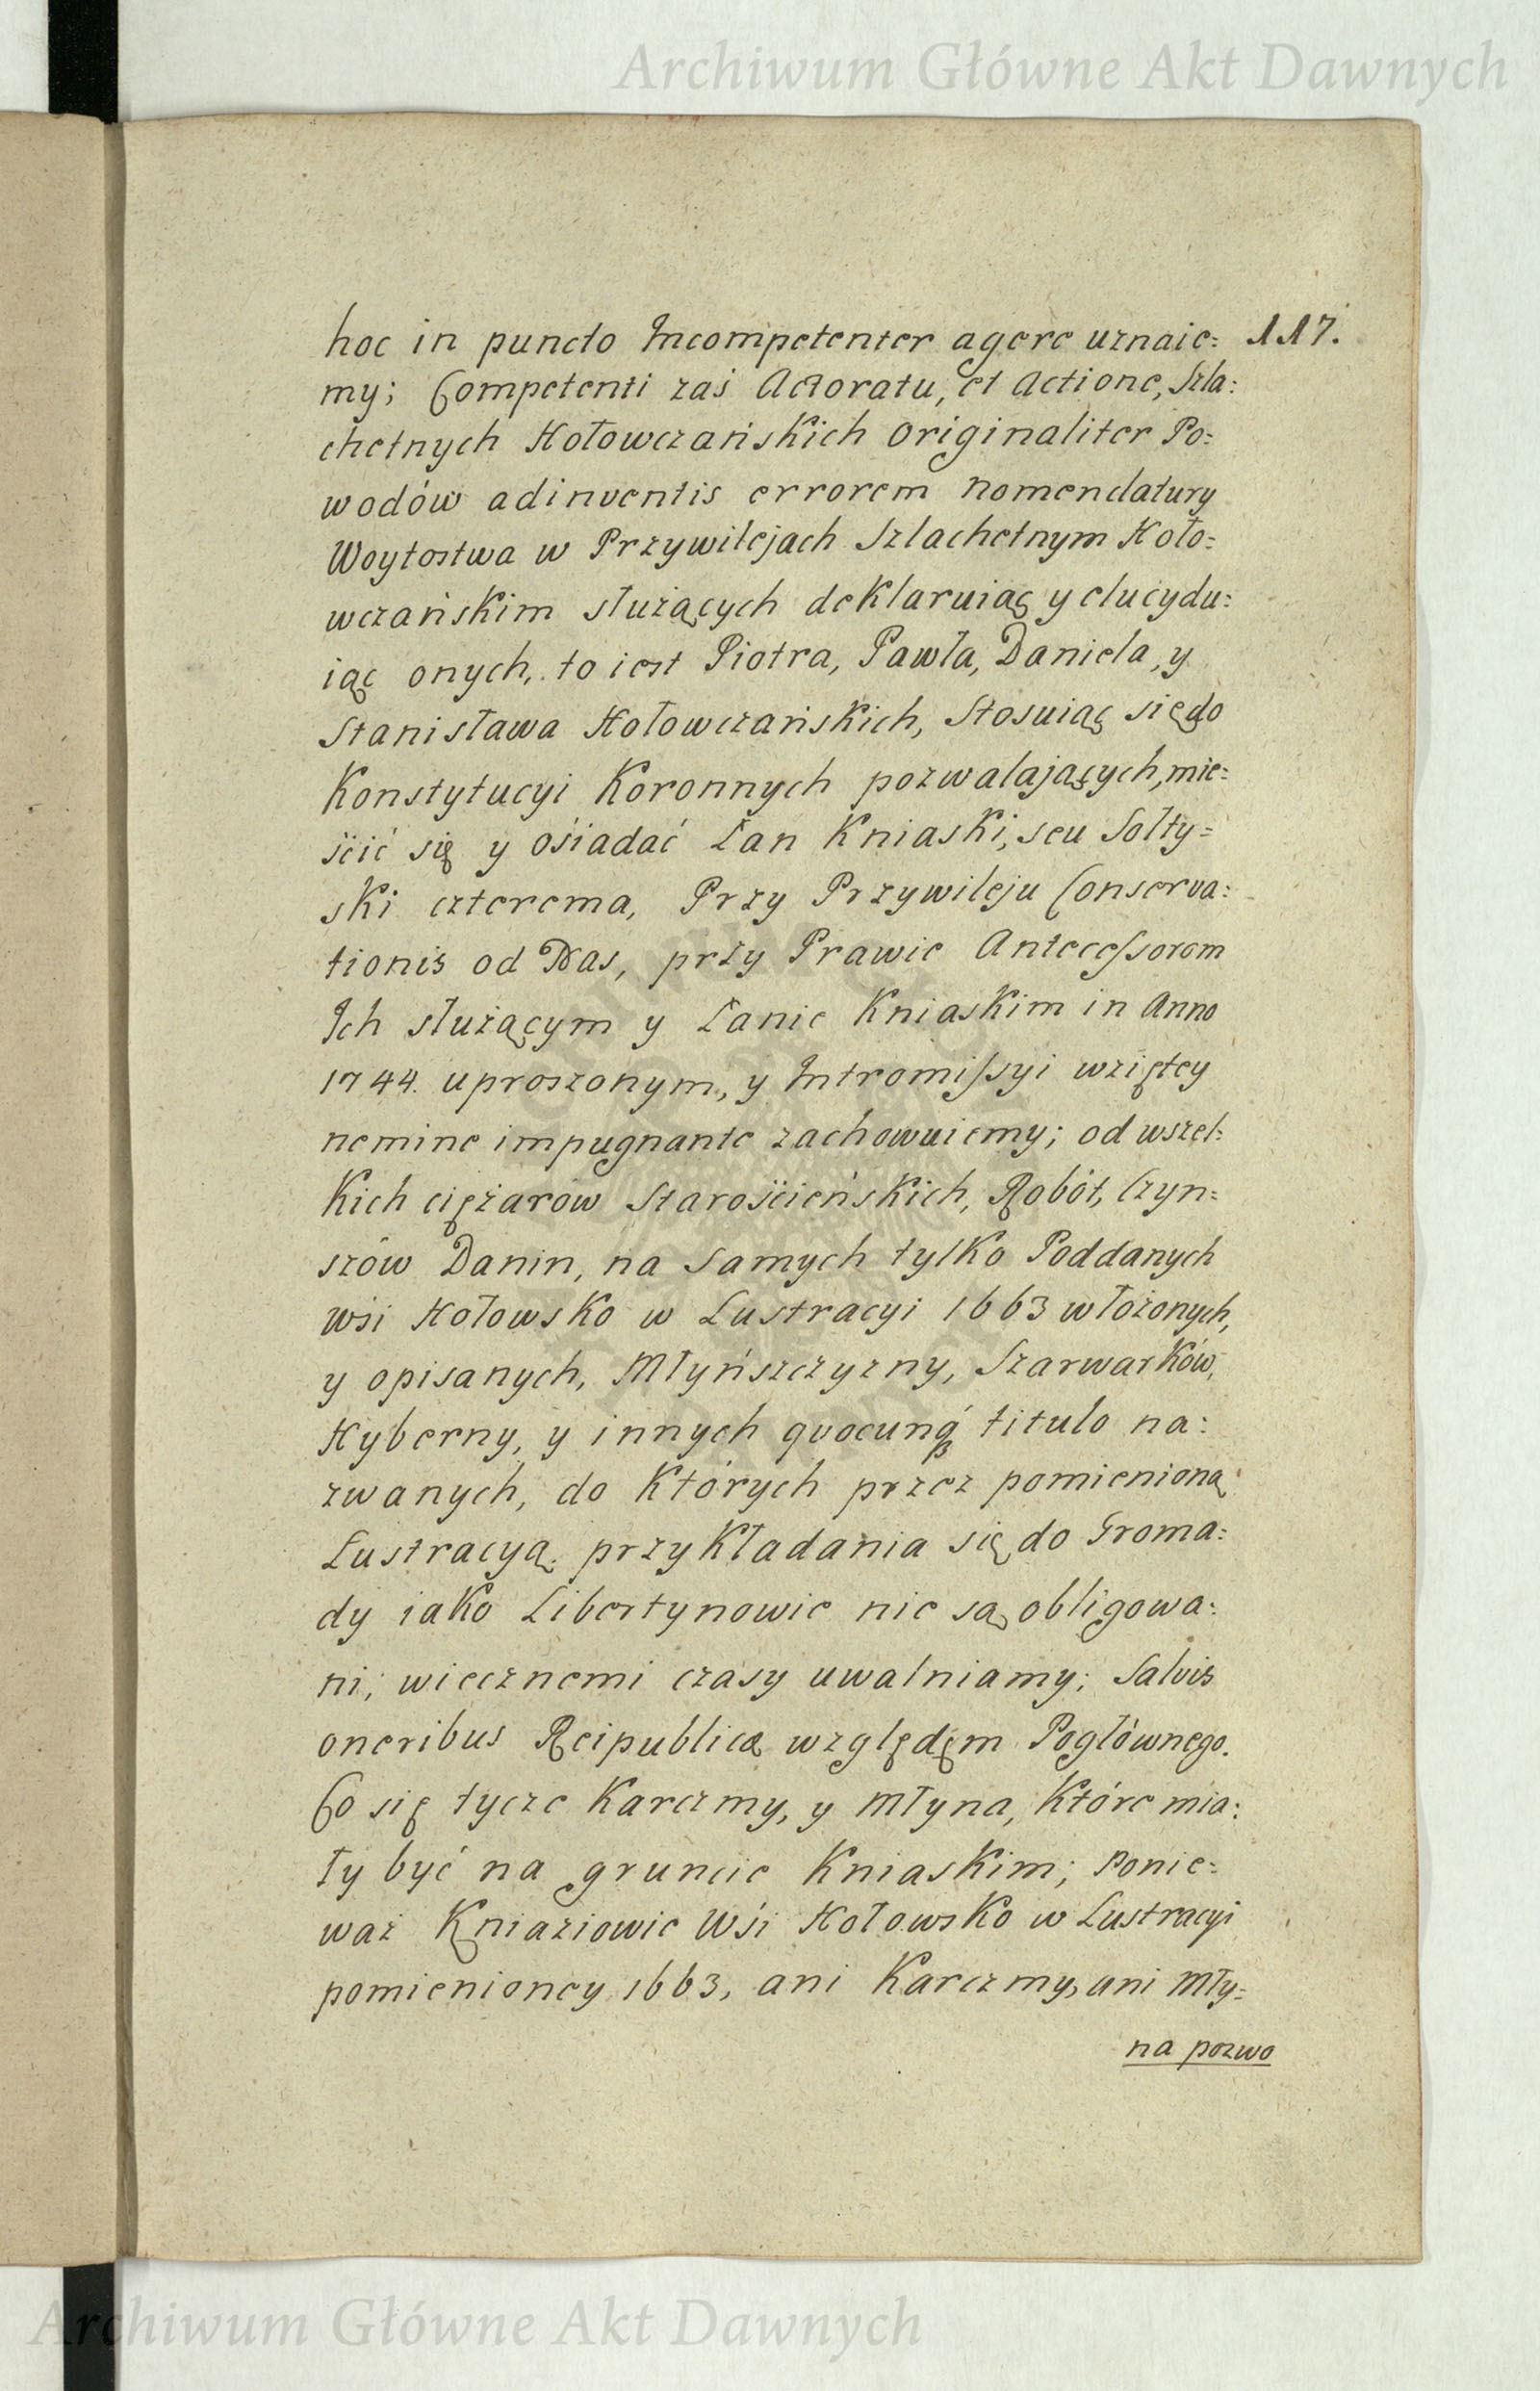 Archiwum Główne Akt Dawnych
117.
hoc in puncto Incompetenter agere uznaie:
my; Competenti zaś Actoratu, et Actione, Szla:
chetnych Hołowczańskich originaliter Po:
wodów adinventis errorem nomenclatury
Woytostwa w Przywilejach Szlachetnym Hoło:
wczańskim służących deklaruiąc y elucydu:
iąc onych, to iest Piotra, Pawła, Daniela, y
Stanisława Hołowczańskich, Stosuiąc się do
Konstytucyi Koronnych pozwalających, mie:
ścić się y ośiadać Łan Kniaski, seu Sołty=
ski czterema, Przy Przywileju Conserva:
tionis od Nas, przy Prawie Antecessorom
Ich służącym y Łanie Kniaskim in Anno
1744. uproszonym, y Intromissyi wziętey
nemine impugnante zachowuiemy; od wszel:
kich ciężarów Starościeńskich, Robót, Czyn:
szów Danin, na samych tylko Poddanych
wśi Hołowsko w Lustracyi 1663 włożonych,
y opisanych, Młyńszczyzny, Szarwarków,
Hyberny, y innych quocunq́ titulo na:
zwanych, do których przez pomienioną
Lustracyą przykładania się do Groma:
dy iako Libertynowie nie są obligowa:
ni; wiecznemi czasy uwalniamy; Salvis
oneribus Reipublicæ względęm Pogłównego.
Co się tycze Karczmy, y Młyna, które mia:
ły być na gruncie Kniaskim; Ponie:
waż Kniaziowie Wśi Hołowsko w Lustracyi
pomienioney 1663, ani Karczmy, ani Mły=
na pozwo
Archiwum Główne Akt Dawnych